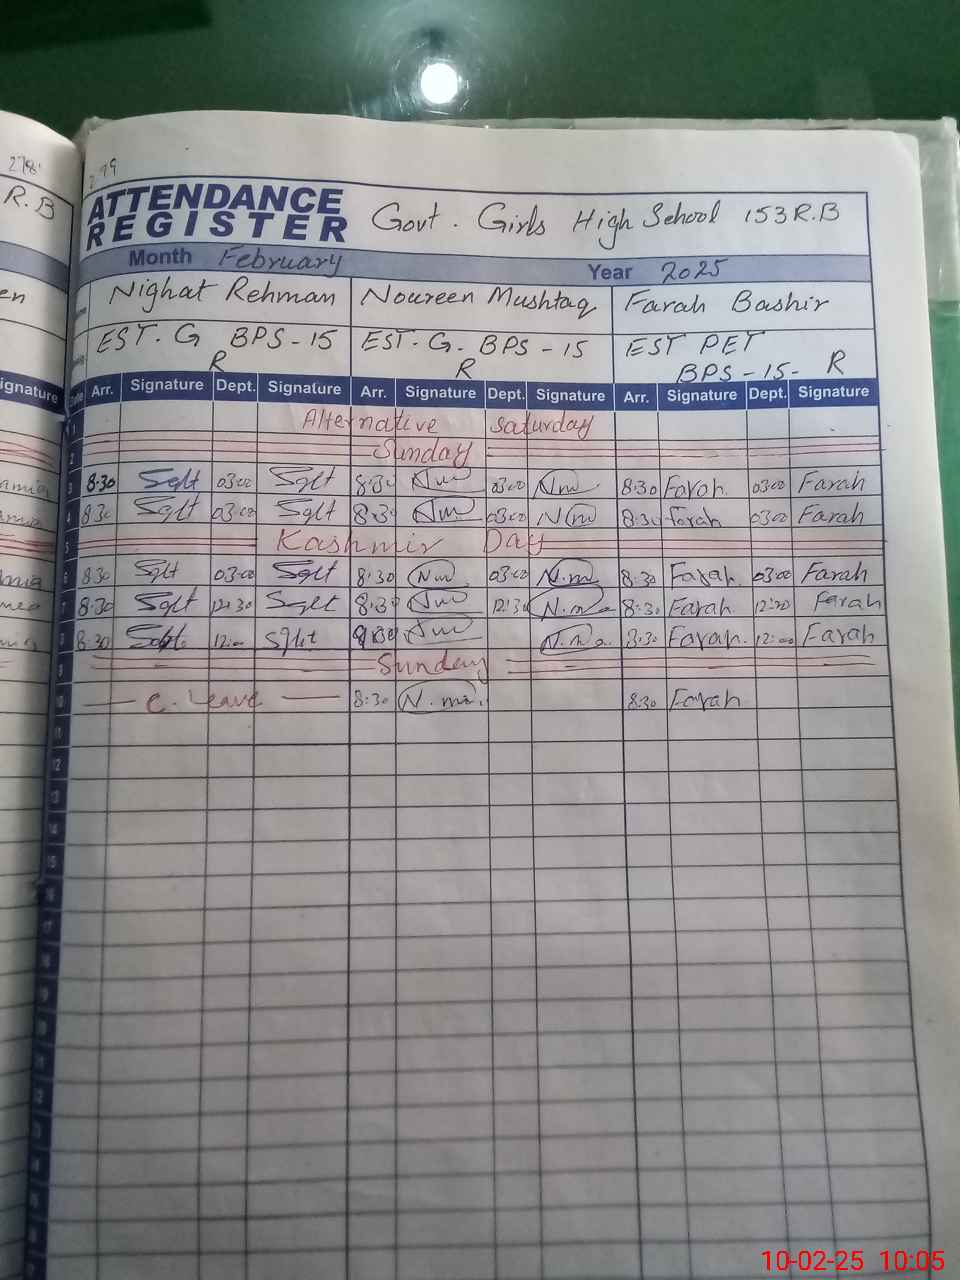 278
R.B
en
ignature
299
ATTENDANCE
REGISTER
Govt. Girls High School 153 R.B
Month February Year 2025
Nighat Rehman Noureen Mushtaq Farah Bashir
EST. G BPS-15 R EST. G. BPS-15 R EST PET BPS-15- R
Arr. Signature Dept. Signature Arr. Signature Dept. Signature Arr. Signature Dept. Signature
1 Alternative Saturday
2 Sunday
3 8.30 Sqlt 03:00 Sqlt 8:30 Nm 03:00 Nm 8:30 Farah. 03:00 Farah
4 8:30 Sqlt 03:00 Sqlt 8:30 Nm 03:00 Nm 8:30 farah 03:00 Farah
5 Kashmir Day
6 8:30 Sqlt 03:00 Sqlt 8:30 Nm 03:00 N.m 8:30 Farah. 03:00 Farah
7 8:30 Sqlt 12:30 Sqlt 8:30 Nm 12:30 N.m 8:30 Farah. Farah
8 8:30 12:00 Sqlt Nm N.m 8:30 Farah. 12:00 Farah
9 Sunday
10 C. Leave 8:30 N.m. 8:30 Farah
11
12
13
14
15
16
17
18
10-02-25 10:05